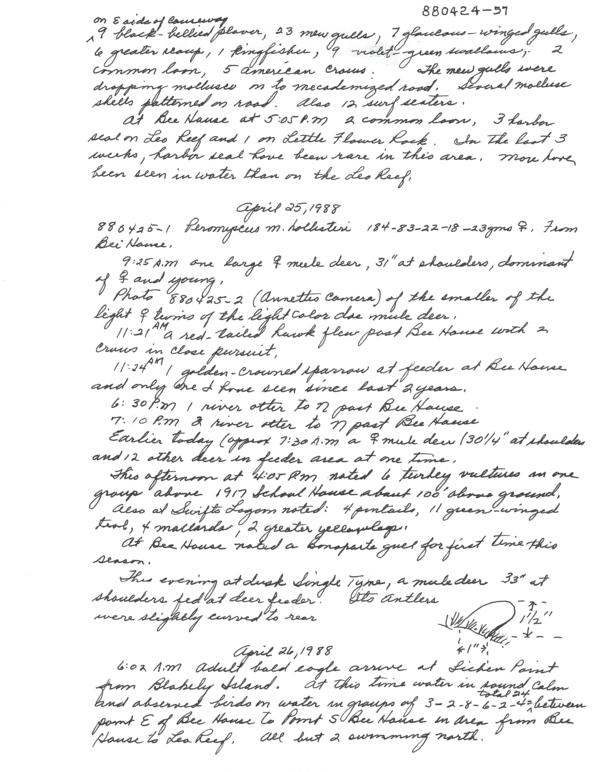 880424-57
on E side of Causeway
^9 black-bellied plover, 23 mew gulls, 7 glaucous-winged gulls,
6 greater scaup, 1 kingfisher, 9 violet-green swallows, 2
common loon, 5 american crows. The mew gulls were
dropping molluscs on to mecademized road. Several mollusc
shells patterned on road. Also 12 surf scoters.
At Bee House at 5:05 P.M 2 common loon, 3 harbor
seal on Leo Reef and 1 on Little Flower Rock. In the last 3
weeks, harbor seal have been rare in this area. More have
been seen in water than on the Leo Reef.
April 25, 1988
880425-1 Peromyscus m. hollisteri 184-83-22-18-23gms ♀. From
Bee House.
9:25 A.M one large ♀ mule deer, 31" at shoulders, dominant
of ♀ and young.
Photo 880425-2 (Annettes Camera) of the smaller of the
light ♀ twins of the light color doe mule deer.
11:21 AM a red-tailed hawk flew past Bee House with 2
crows in close pursuit.
11:24 AM 1 golden-crowned sparrow at feeder at Bee House
and only one I have seen since last 2 years.
6:30 P.M 1 river otter to N past Bee House.
7:10 P.M 2 river otter to N past Bee House
Earlier today (approx 7:30 A.M a ♀ mule deer (30 1/4" at shoulder
and 12 other deer in feeder area at one time.
This afternoon at 4:05 P.M noted 6 turkey vultures in one
group above 1917 School House about 100' above ground.
Also at Swifts Lagoon noted: 4 pintails, 11 green-winged
teal, 4 mallards, 2 greater yellowlegs.
At Bee House noted a Bonaparte gull for first time this
season.
This evening at dusk Single Tyne, a mule deer 33" at
shoulders fed at deer feeder. Its Antlers
were slightly curved to rear
1 1/2"
1"
April 26, 1988
6:02 A.M Adult bald eagle arrive at Lichen Point
from Blakely Island. At this time water in sound calm
and observed birds on water in groups of 3-2-8-6-2-4= total 24 between
point E of Bee House to Point S Bee House in area from Bee
House to Leo Reef. All but 2 swimming north.